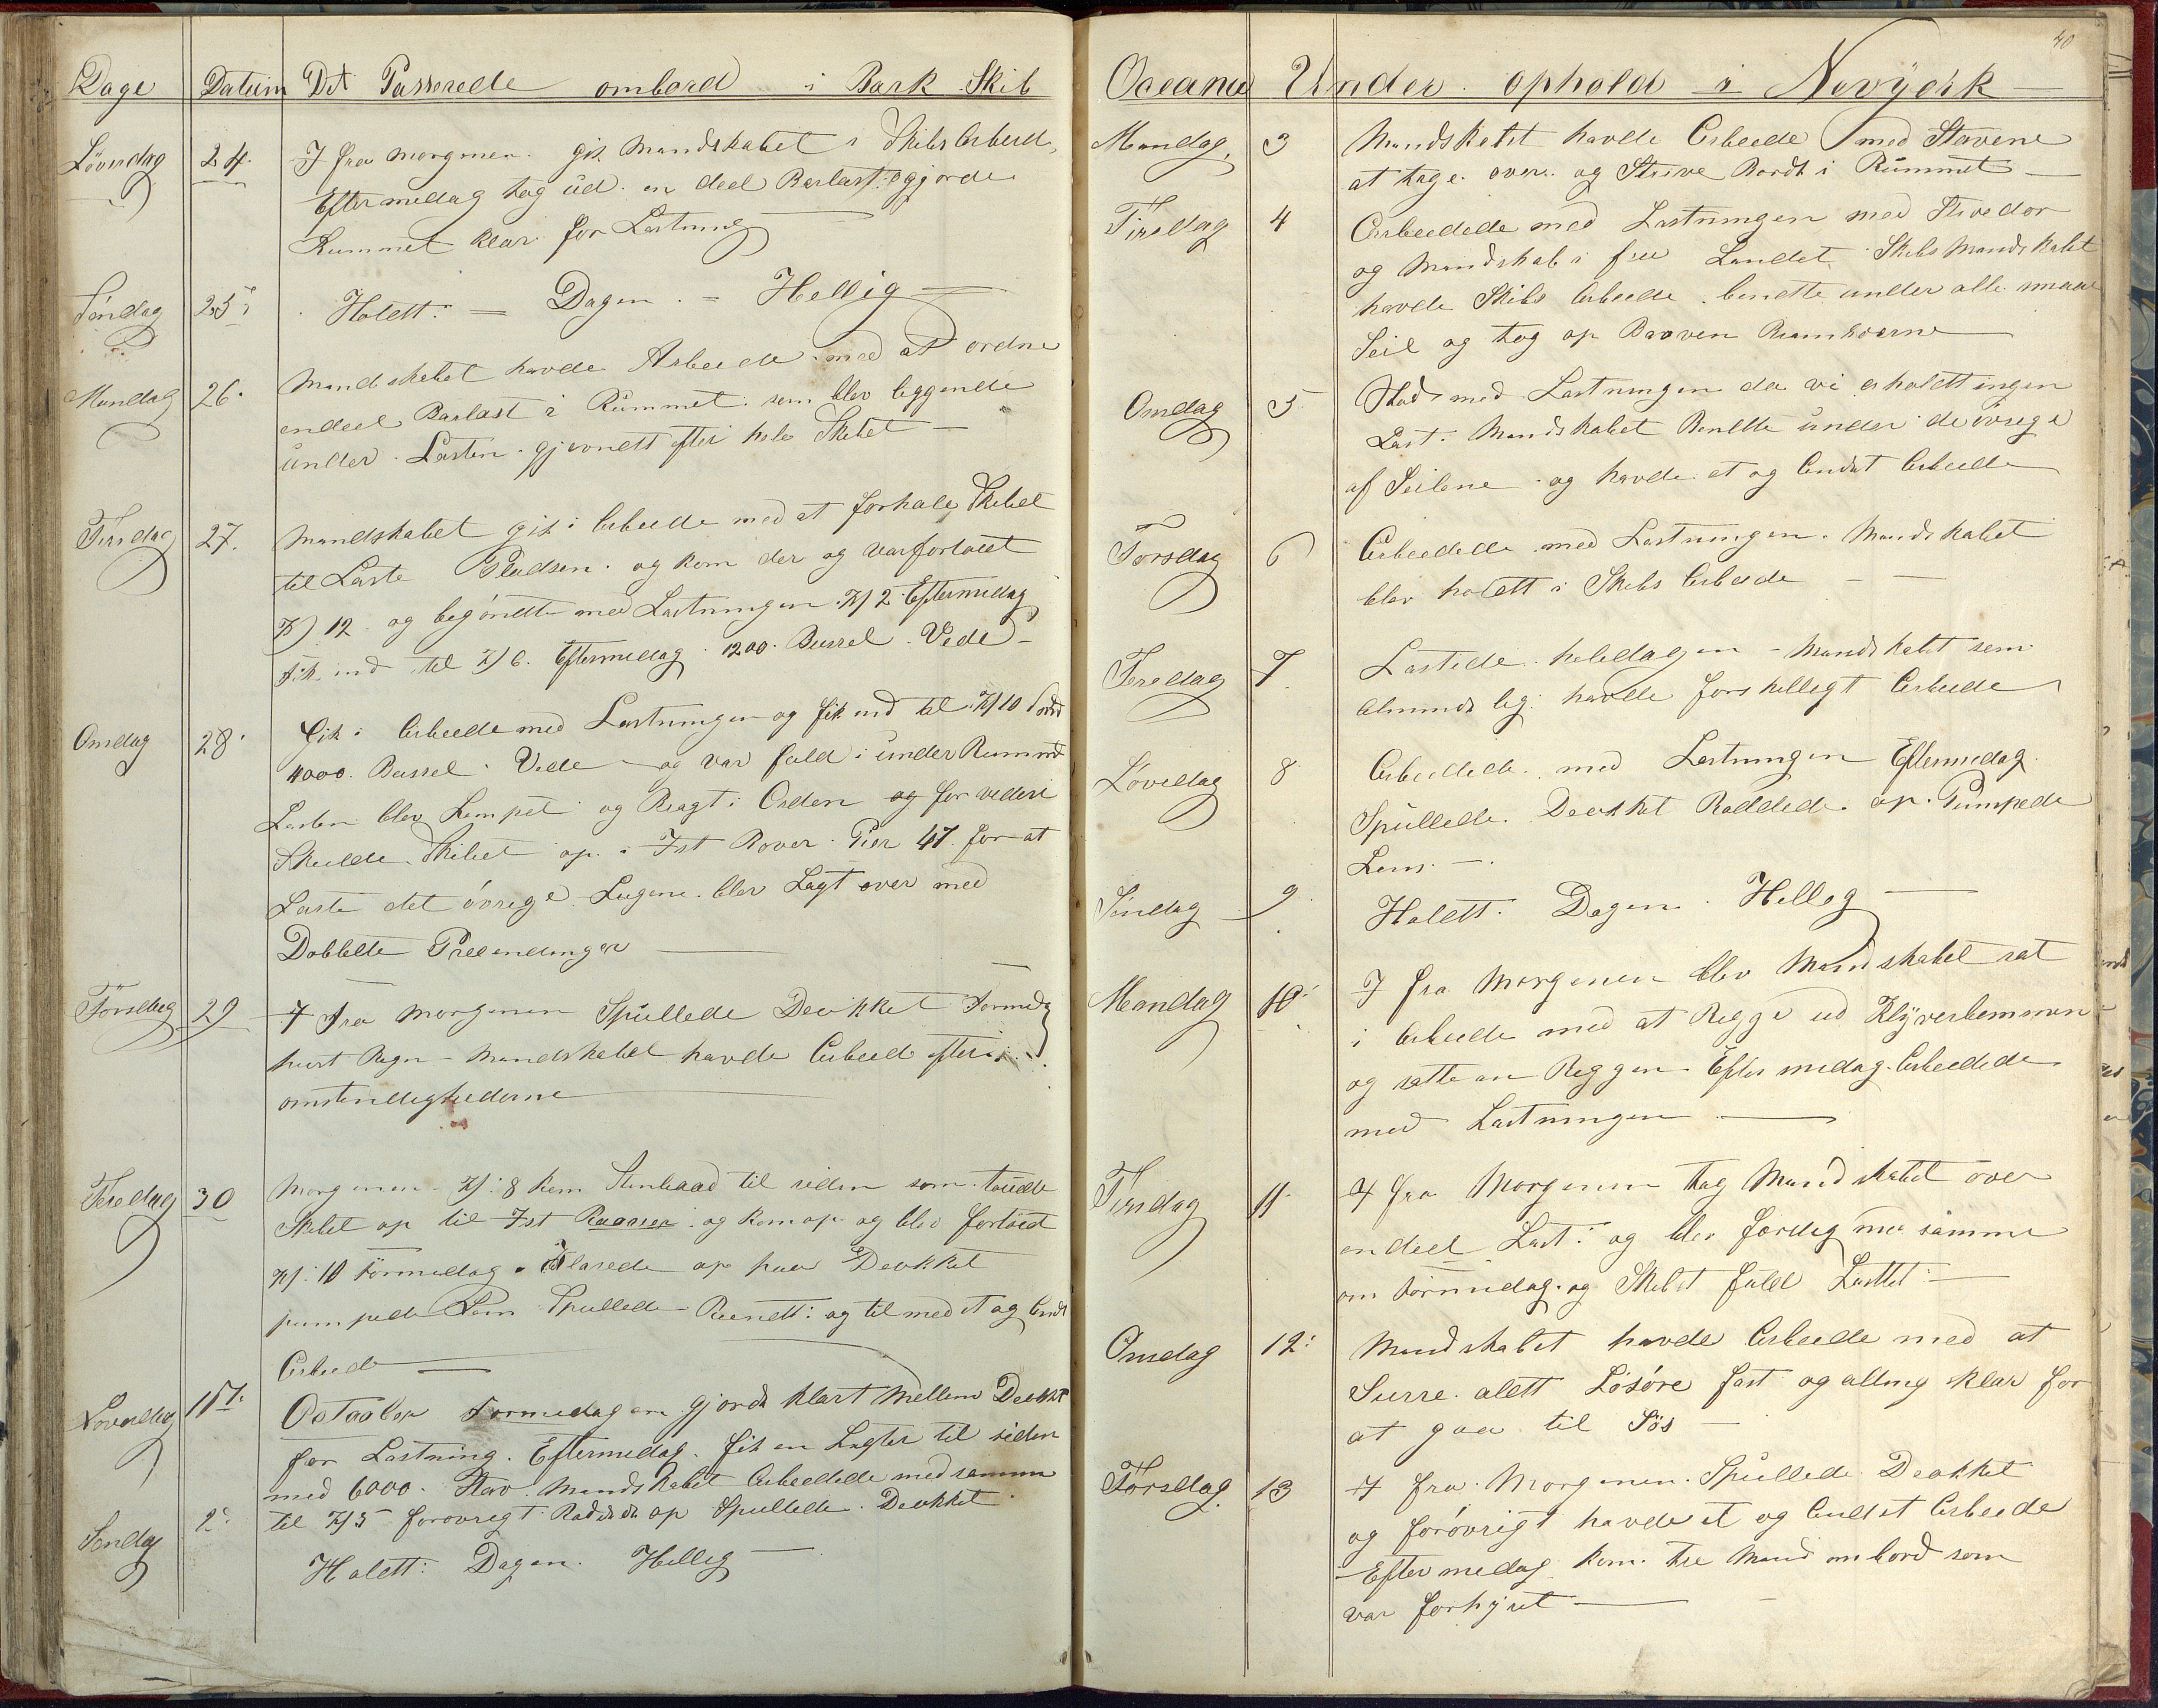 Dage Datum Det Passerede ombord i Bark Skib
Löverdag 24. I fra morgenen gik Mandskabet i Skibs Arbeide,
Eftermedag tog üd en deel Barlast: gjorde
Rummet klar for Lastning
Söndag 25: Holdtt: = Dagen. = Hellig
Mandag 26. Mandskabet havde Arbeide med at ordne
endeel Barlast i Rümmet som blev leggende
ünder Lasten gjevnett efter hele Skibet —
Tirsdag 27. Mandskabet gik i Arbeide med at forhale Skibet
til Laste Pladsen og kom der og var fortöiet
Kl 12 og begöndte med Lastningen Kl 2 Eftermedag
fik ind til Kl 6. Eftermedag 1200. Bussel Vede
Onsdag 28. Gik i Arbeide med Lastningen og fik ind til Kl 10
4000. Bussel Vede og var fuld i under Rummet
Lasten blev Lempet og Bragt i Orden og for vedere
Skulde Skibet op i Ist Rover Pier 47 for at
Laste det övrege Lugene blev Lagt over med
Dobbelte Presendinger
Torsdag 29 I fra morgenen Spüllede Deckket Formedag
hvert Regn – Mandskabet havde Arbeid efter
omstendeghederne
Fredag 30 Morgenen – Kl: 8 kom Stimbaad til siden som toüede
Skibet op til Ist Raaver og kom op og blev fortöiet
Kl: 10 Formedag Klarede op paa Deckket
pumpede Lens Spullede Reendtt: og til med et og andet
Arbeid
Löverdag 1st. Octaaber Formedagen gjorde klart Mellem Deckket
for Lastning. Eftermedag fik en Legter til siden
med 6000. Stav. Mandskabet Arbeidede med samme
til Kl 5 forövregt Raddede op Spullede Deckket.
Söndag 2: Holdtt: Dagen. Hellig —
40
Oceana Under ophold i Nevÿork —
Mandag, 3 Mandskabet havde Arbeide med Stavene
at tage over og Stuve Bordt i Rümmet —
Tirsdag 4 Arbeidede med Lastningen med Stivedor
og Mandskab i fra Landet Skibs Mandskabet
havde Skibs Arbeide bendtte under alle smaae
Seil og tog op Braven
Onsdag 5 Stod med Lastningen da vi erholdtt ingen
Last. Mandskabet Bendtte ünder de övrege
af Seilene og havde et og andet Arbeide
Torsdag 6 Arbeidede med Lastningen. Mandskabet
blev holdtt i Skibs Arbeide — —
Feredag 7 Lastede heledagen – Mandskabet som
almindeleg havde forskellegt Arbeide
Löverdag 8 Arbeidede med Lastningen Eftermedag
Spüllede Deckket Raddede op. Pumpede
Lens —.
Söndag 9 Holdtt. Dagen. Helleg —
Mandag 10: I fra Morgenen blev Mandskabet sat
i Arbeide med at Regge ud Klÿverbommen
og satte an Reggen Eftermedag Arbeidede
med Lastningen —
Tirsdag 11. I fra Morgenen tog Mandskabet över
en deel Last: og blev færdig med samme
om Formedag og Skibet fuld Lastet —
Onsdag 12: Mandskabet havde Arbeide med at
Surre alett Lösöre fast og alting klar for
at gaa til Sös —
Torsdag 13 I fra Morgenen Spüllede Deckket
og forövrigt havde et og andet Arbeide
Eftermedag kom tre Mand ombord som
var forhÿret —